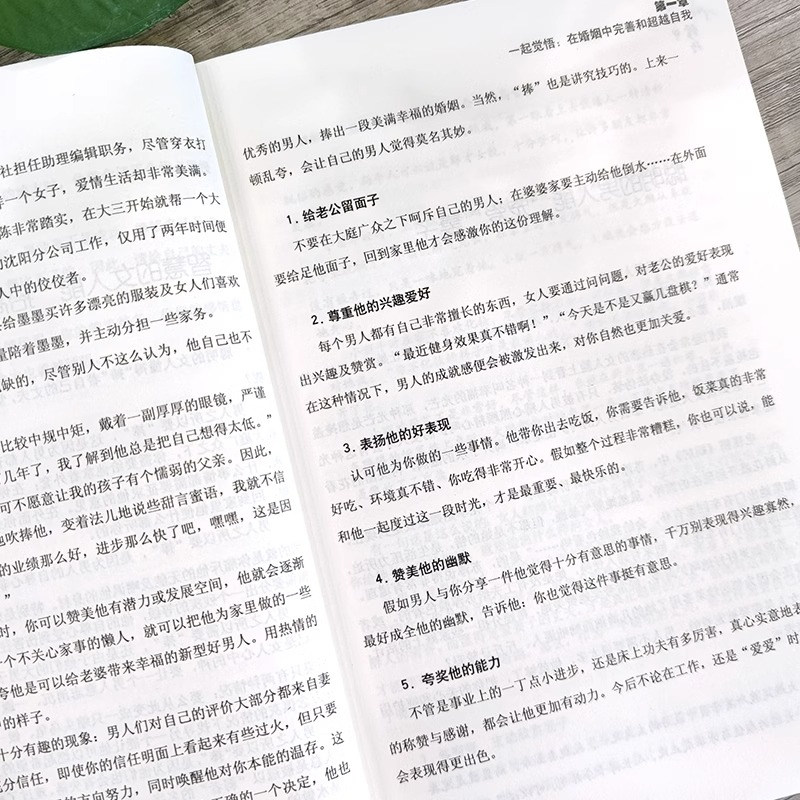 社担任助理编辑职务，尽管穿衣打
一个女子，爱情生活却非常美满。
陈非常踏实，在大三开始就帮一个大
沈阳分公司工作，仅用了两年时间便
人中的佼佼者。
给墨墨买许多漂亮的服装及女人们喜欢
陪着墨墨，并主动分担一些家务。
缺的，尽管别人不这么认为，他自己也不
比较中规中矩，戴着一副厚厚的眼镜，严谨
了几年了，我了解到他总是把自己想得太低。”
可不愿意让我的孩子有个懦弱的父亲。因此，
吹捧他，变着法儿地说些甜言蜜语，我就不信
的业绩那么好，进步那么快了吧，嘿嘿，这是因
”
时，你可以赞美他有潜力或发展空间，他就会逐渐
一个不关心家事的懒人，就可以把他为家里做的一些
夸他是可以给老婆带来幸福的新型好男人。用热情的
的样子。
十分有趣的现象：男人们对自己的评价大部分都来自妻
充分信任，即使你的信任明面上看起来有些过火，但只要
的方向努力，同时唤醒他对你本能的温存。这
正确的一个决定，他也
第一章
一起觉悟：在婚姻中完善和超越自我
优秀的男人，捧出一段美满幸福的婚姻。当然，“捧”也是讲究技巧的。上来一
顿乱夸，会让自己的男人觉得莫名其妙。
1. 给老公留面子
不要在大庭广众之下呵斥自己的男人；在婆婆家要主动给他倒水……在外面
要给足他面子，回到家里他才会感激你的这份理解。
2. 尊重他的兴趣爱好
每个男人都有自己非常擅长的东西，女人要通过问问题，对老公的爱好表现
出兴趣及赞赏。“最近健身效果真不错啊！”“今天是不是又赢几盘棋？”通常
在这种情况下，男人的成就感便会被激发出来，对你自然也更加关爱。
3. 表扬他的好表现
认可他为你做的一些事情。他带你出去吃饭，你需要告诉他，饭菜真的非常
好吃、环境真不错、你吃得非常开心。假如整个过程非常糟糕，你也可以说，能
和他一起度过这一段时光，才是最重要、最快乐的。
4. 赞美他的幽默
假如男人与你分享一件他觉得十分有意思的事情，千万别表现得兴趣寡然，
最好成全他的幽默，告诉他：你也觉得这件事挺有意思。
5. 夸奖他的能力
不管是事业上的一丁点小进步，还是床上功夫有多厉害，真心实意地表
的称赞与感谢，都会让他更加有动力。今后不论在工作，还是“爱爱”时
会表现得更出色。